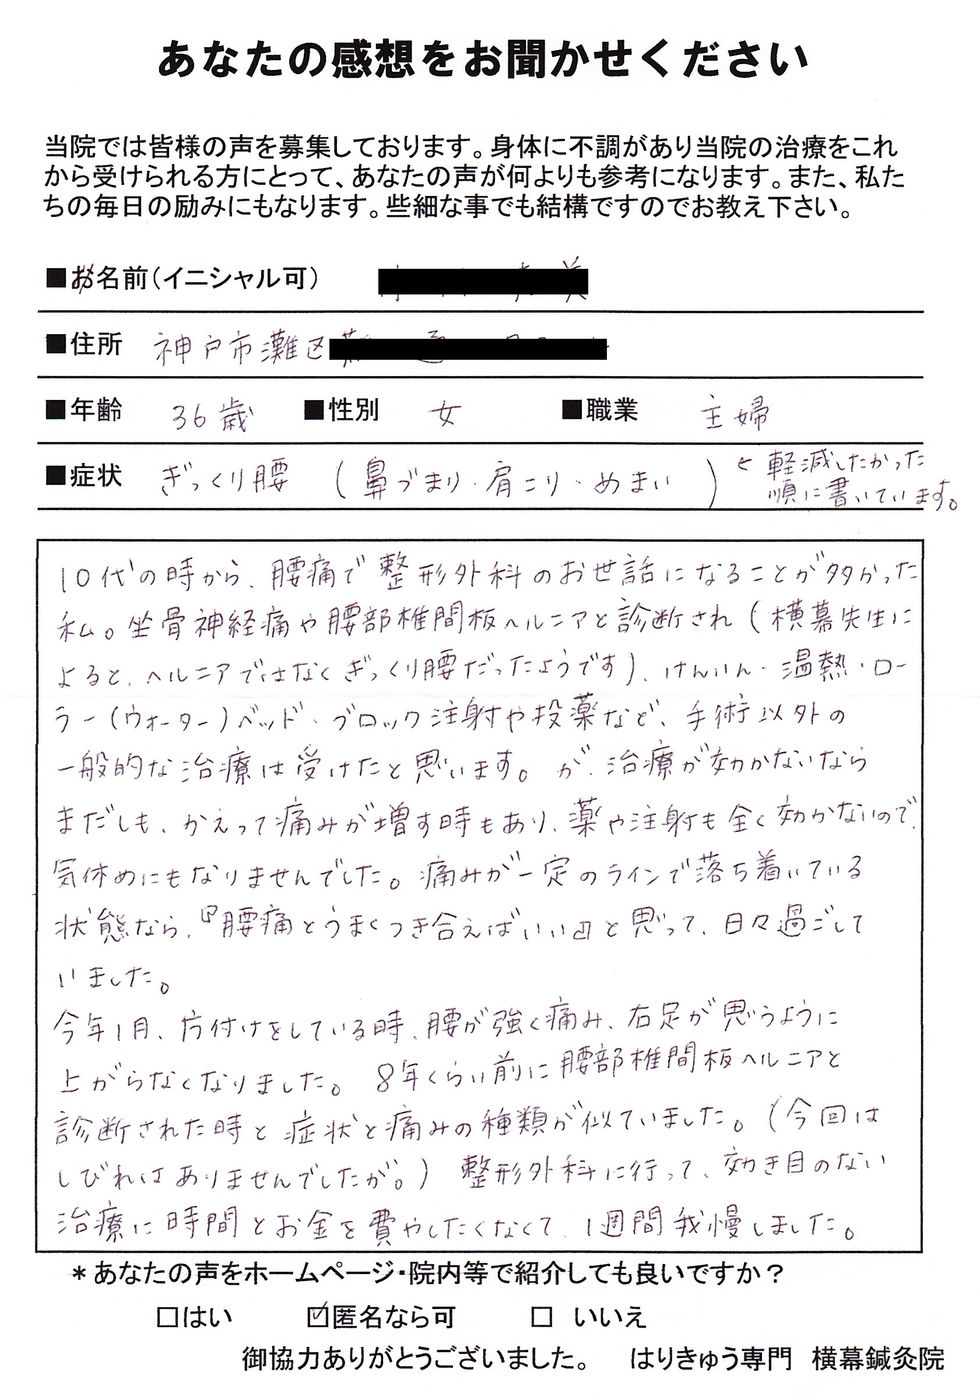 あなたの感想をお聞かせください
当院では皆様の声を募集しております。身体に不調があり当院の治療をこれ
から受けられる方にとって、あなたの声が何よりも参考になります。また、私た
ちの毎日の励みにもなります。些細な事でも結構ですのでお教え下さい。
■お名前（イニシャル可）
■住所 神戸市灘区
■年齢 36歳 ■性別 女 ■職業 主婦
■症状 ぎっくり腰 （鼻づまり・肩こり・めまい） ← 軽減したかった
順に書いています。
10代の時から、腰痛で整形外科のお世話になることが多かった
私。坐骨神経痛や腰部椎間板ヘルニアと診断され（横幕先生に
よると、ヘルニアではなくぎっくり腰だったようです）、けんいん・温熱・ロー
ラー（ウォーター）ベッド・ブロック注射や投薬など、手術以外の
一般的な治療は受けたと思います。が、治療が効かないなら
まだしも、かえって痛みが増す時もあり、薬や注射も全く効かないので、
気休めにもなりませんでした。痛みが一定のラインで落ち着いている
状態なら、『腰痛とうまくつき合えばいい』と思って、日々過ごして
いました。
今年1月、片付けをしている時、腰が強く痛み、右足が思うように
上がらなくなりました。8年くらい前に腰部椎間板ヘルニアと
診断された時と症状と痛みの種類が似ていました。（今回は
しびれはありませんでしたが。）整形外科に行って、効き目のない
治療に時間とお金を費やしたくなくて、1週間我慢しました。
＊あなたの声をホームページ・院内等で紹介しても良いですか？
□はい ☑匿名なら可 □ いいえ
御協力ありがとうございました。 はりきゅう専門 横幕鍼灸院